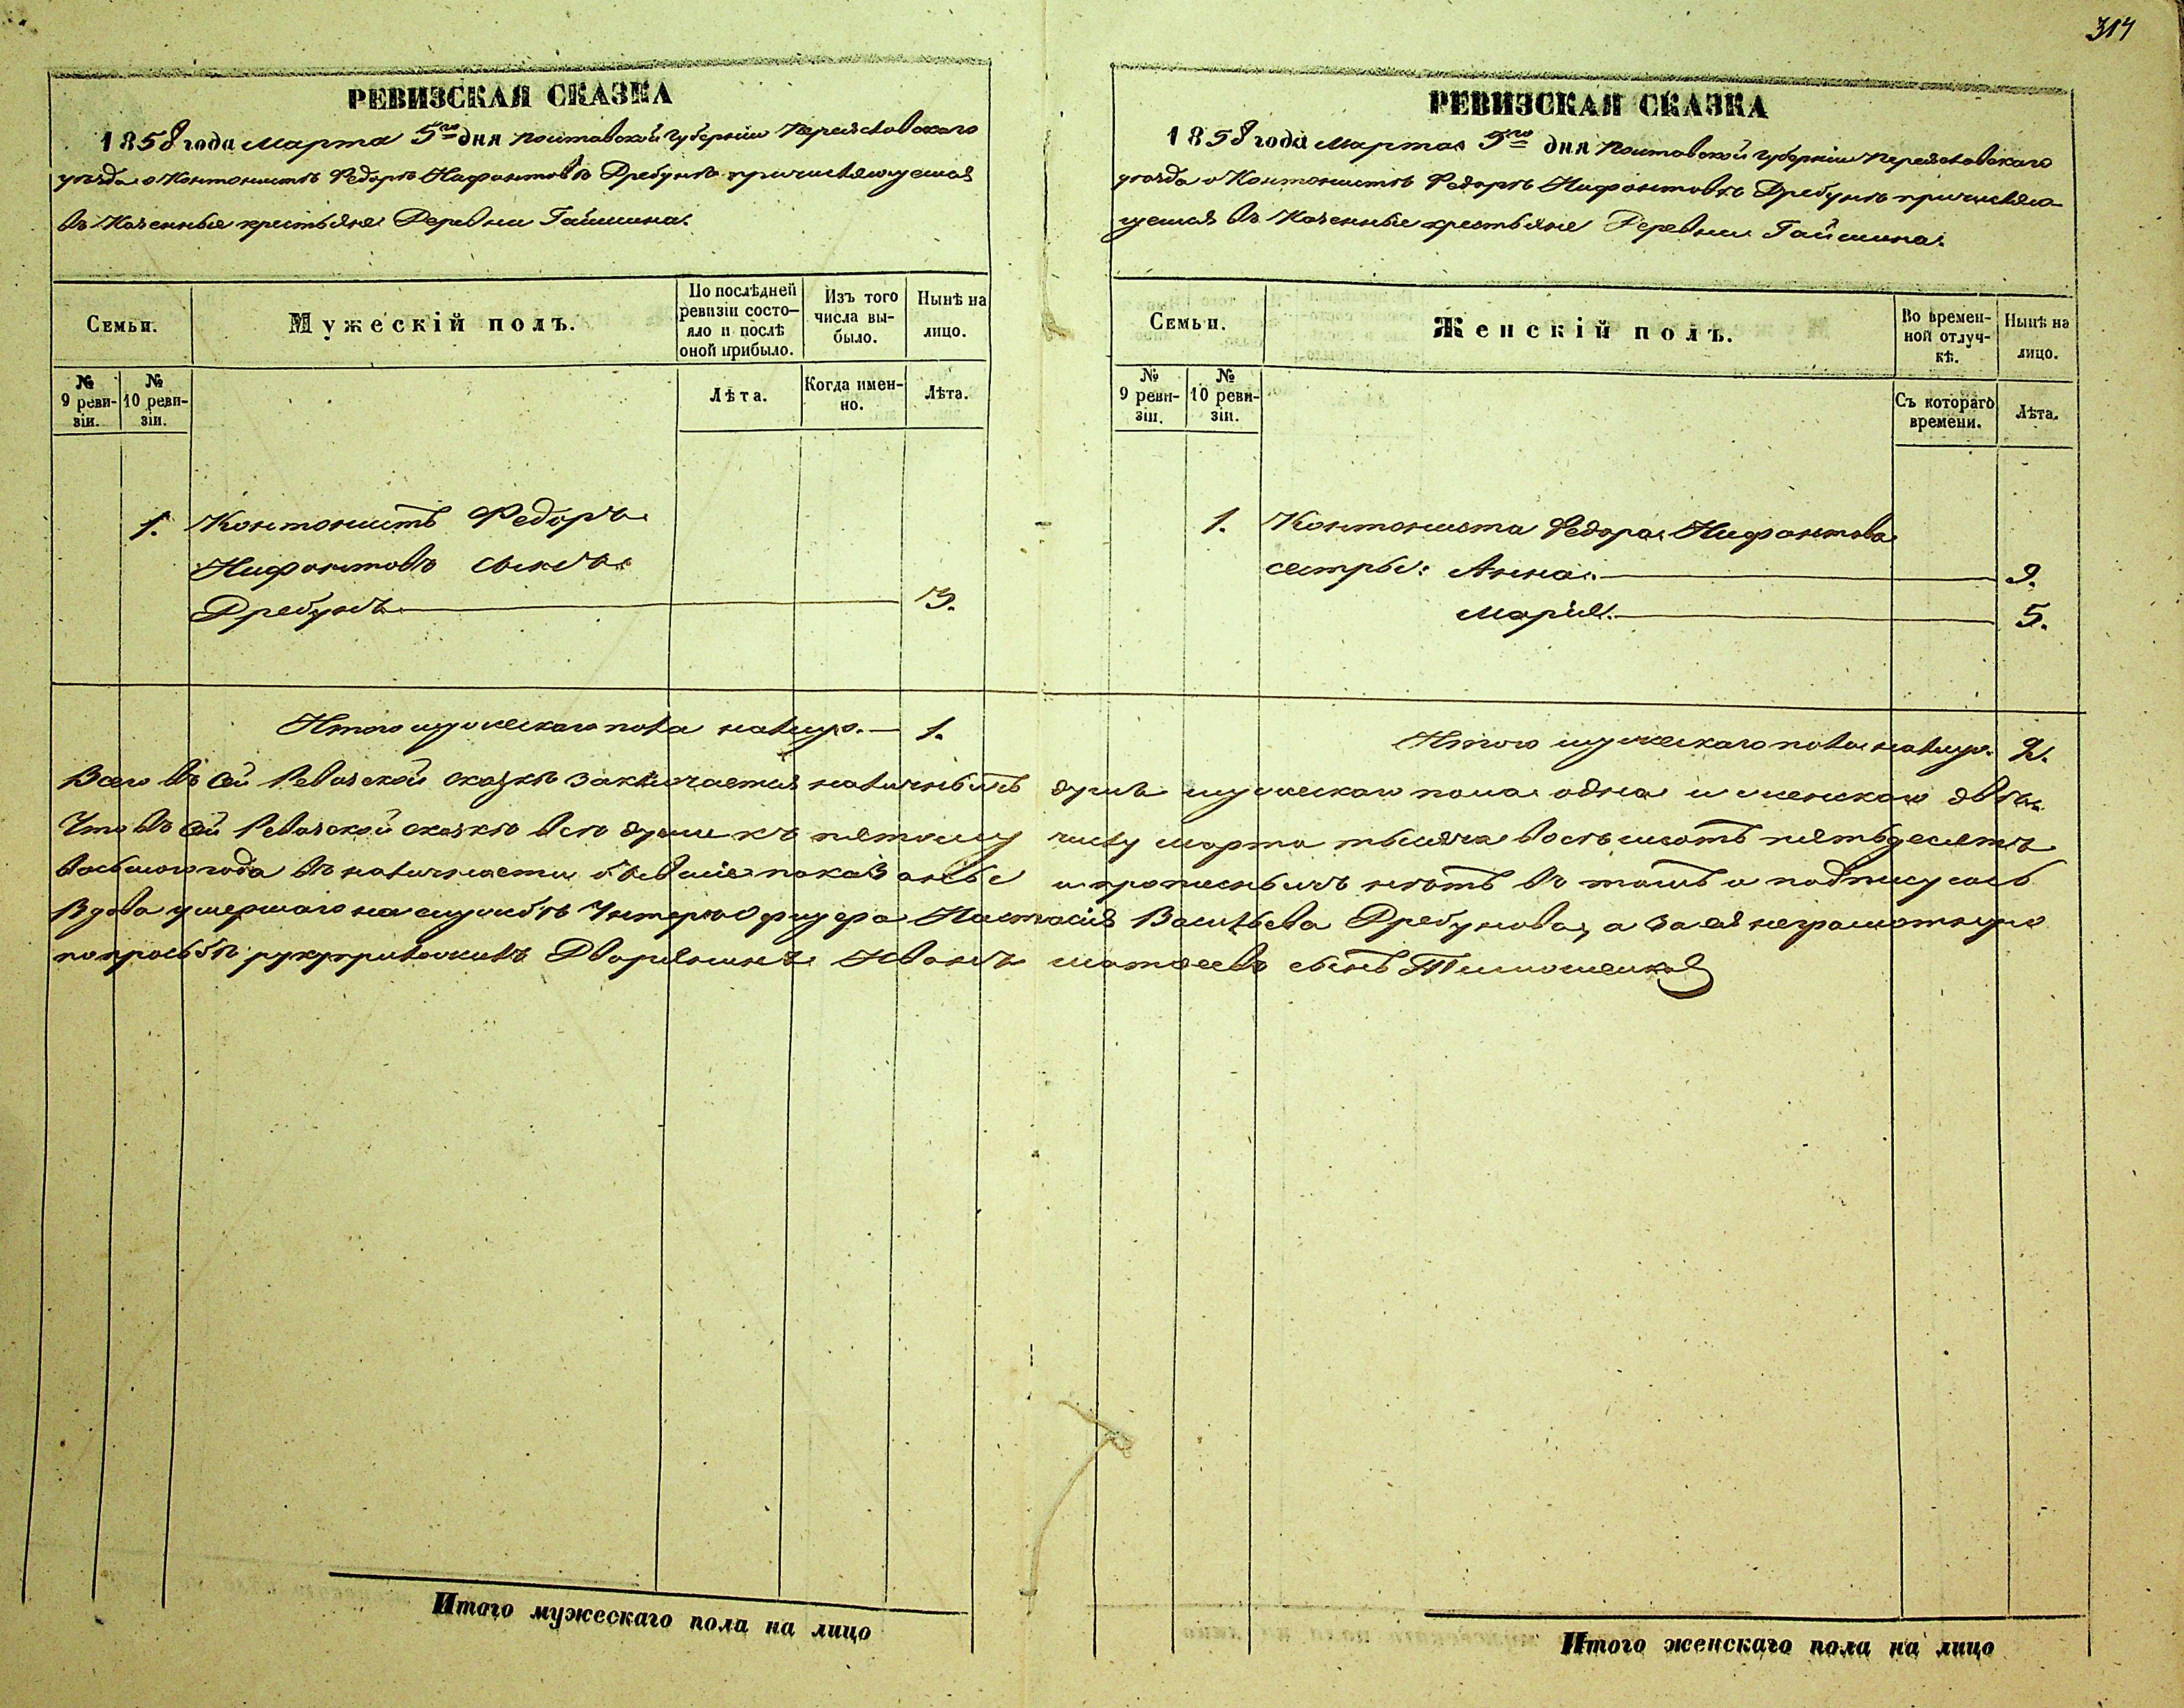 314
РЕВИЗСКАЯ СКАЗКА
1858 года Марта 5го дня Полтавской Губерніи Переяславскаго
уѣзда о Кантонистѣ Федорѣ Нифонтовѣ Дребунѣ причисляющемся
въ Казенные крестьяне Деревни Гайшина.
Семьи.
Мужескій полъ.
По послѣдней
ревизіи состо-
яло и послѣ
оной прибыло.
Изъ того
числа вы-
было.
Нынѣ на
лицо.
№
9 реви-
зіи.
№
10 реви-
зіи.
Лѣта.
Когда имен-
но.
Лѣта.
1. Кантонистъ Федоръ
Нифонтовъ сынъ
Дребунъ 3.
Итого мужескаго пола налицо. 1.
РЕВИЗСКАЯ СКАЗКА
1858 года Марта 5го дня Полтавской Губерніи Переяславскаго
уѣзда о Кантонистѣ Федорѣ Нифонтовѣ Дребунѣ причисляю-
щемся въ Казенные крестьяне Деревни Гайшина.
Семьи.
Женскій полъ.
Во времен-
ной отлуч-
кѣ.
Нынѣ на
лицо.
№
9 реви-
зіи.
№
10 реви-
зіи.
Съ котораго
времени.
Лѣта.
1. Кантониста Федора Нифонтова
сестры: Анна. 9.
Марія. 5.
Итого мужескаго пола налицо. 2.
Всего въ сей Ревизской сказкѣ заключается наличныхъ душъ мужескаго пола одна и женскаго двѣ.
Что въ сей Ревизской сказкѣ всѣ души къ пятому числу марта тысяча восемьсотъ пятьдесятъ
восьмого года въ наличности бывшіе показаны и прописныхъ нѣтъ въ томъ и подписуюсь
Вдова умершаго на службѣ Унтеръ Офицера Настасія Васильева Дребунова, а за ея неграмотную
по просьбѣ руку приложилъ Дворянинъ Иванъ Матвеевъ сынъ Тимошенко
Итого мужескаго пола на лицо
Итого женскаго пола на лицо